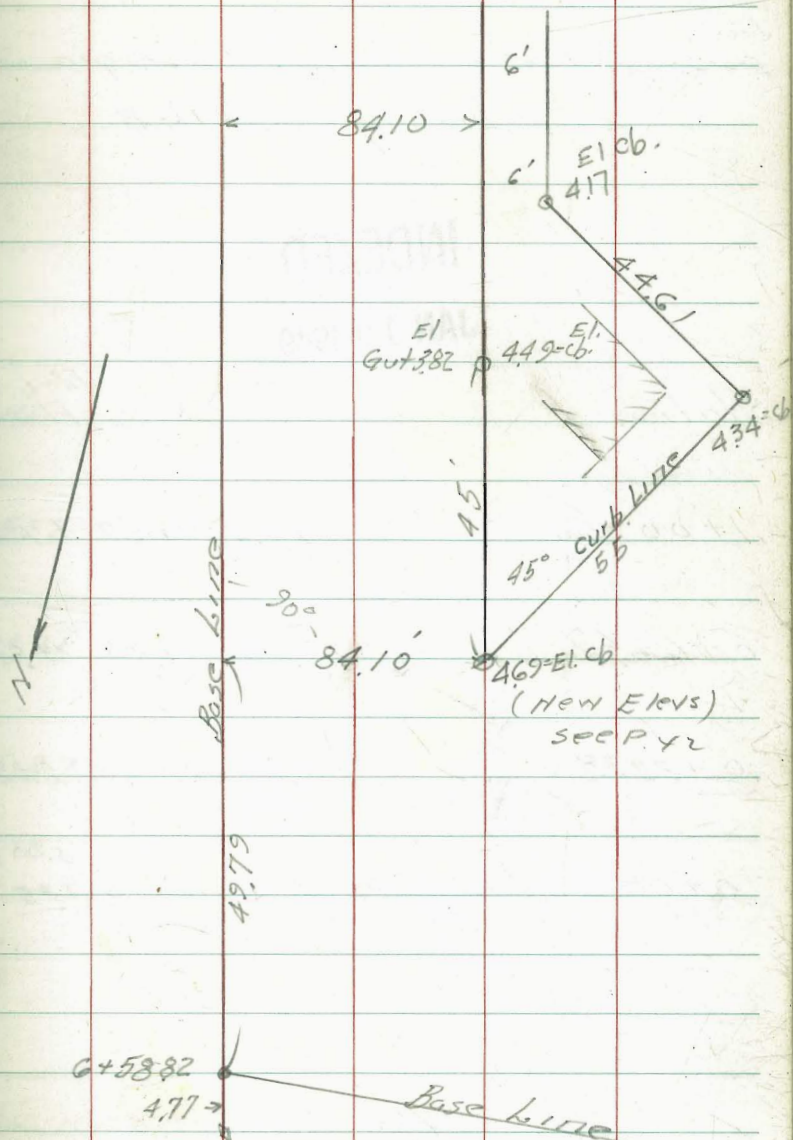 6'
84.10
6'
El cb.
4.17
44.61
El
Gut 3.82
El.
4.49=cb.
4.34=cb
45'
curb Line
55
45°
Base Line
90°
84.10'
4.69=El.cb
(New Elevs)
see P. 42
N
49.79
6+58.82
4.77
Base Line